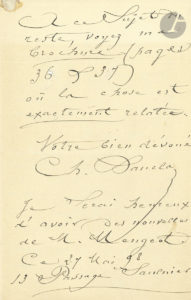 A ce sujet du
reste, voyez ma
brochure (pages
36 & 37)
où la chose est
exactement relatée.
Votre bien dévoué
Ch. Dancla
Je serai heureux
d'avoir des nouvelles
de M. Mangeot
Ce 27 Mai 98
13 Passage Saulnier